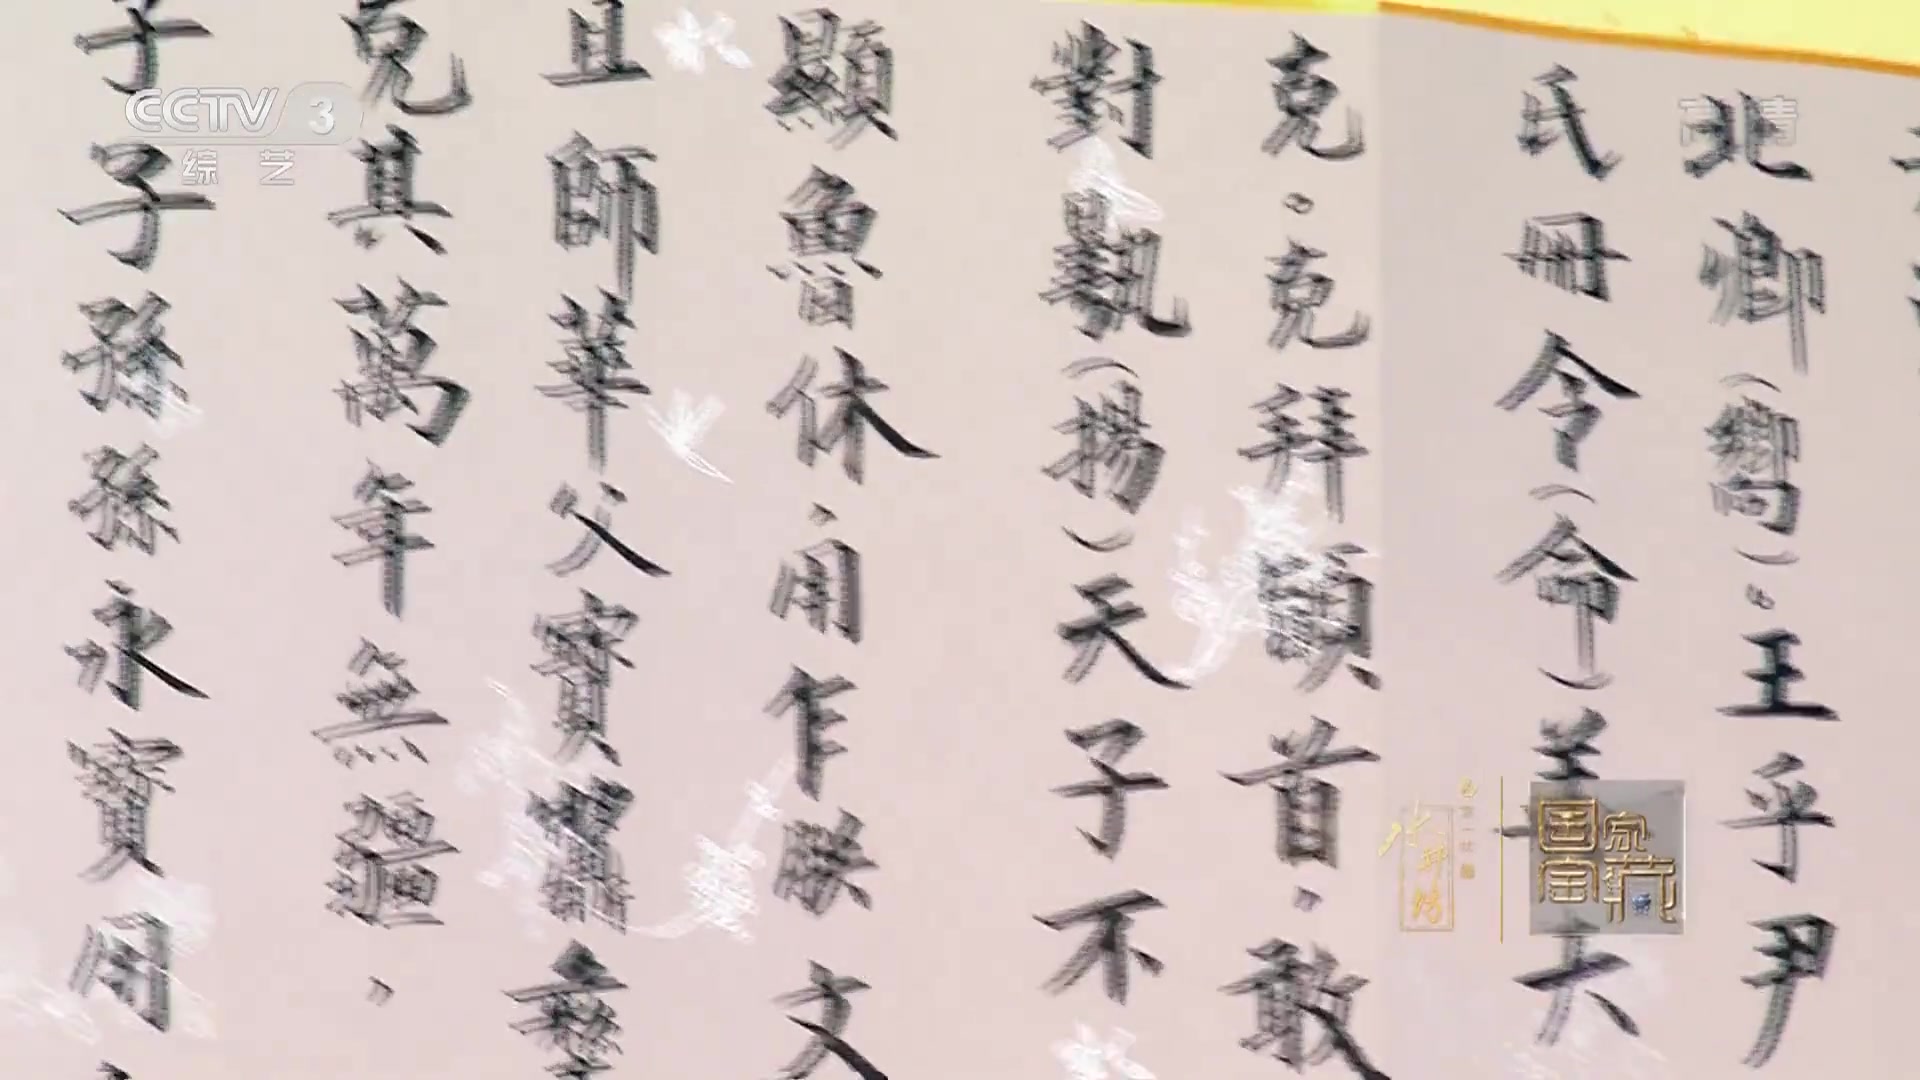 CCTV 3
综艺
高清
北卿(嚮)。王乎尹
氏冊令(命) 大
克。克拜䭫首,敢
對 (揚)天子不
顯魯休,用乍朕文
且師華父寶 彝
克其萬年無疆,
子子孫孫永寶用
国家宝藏